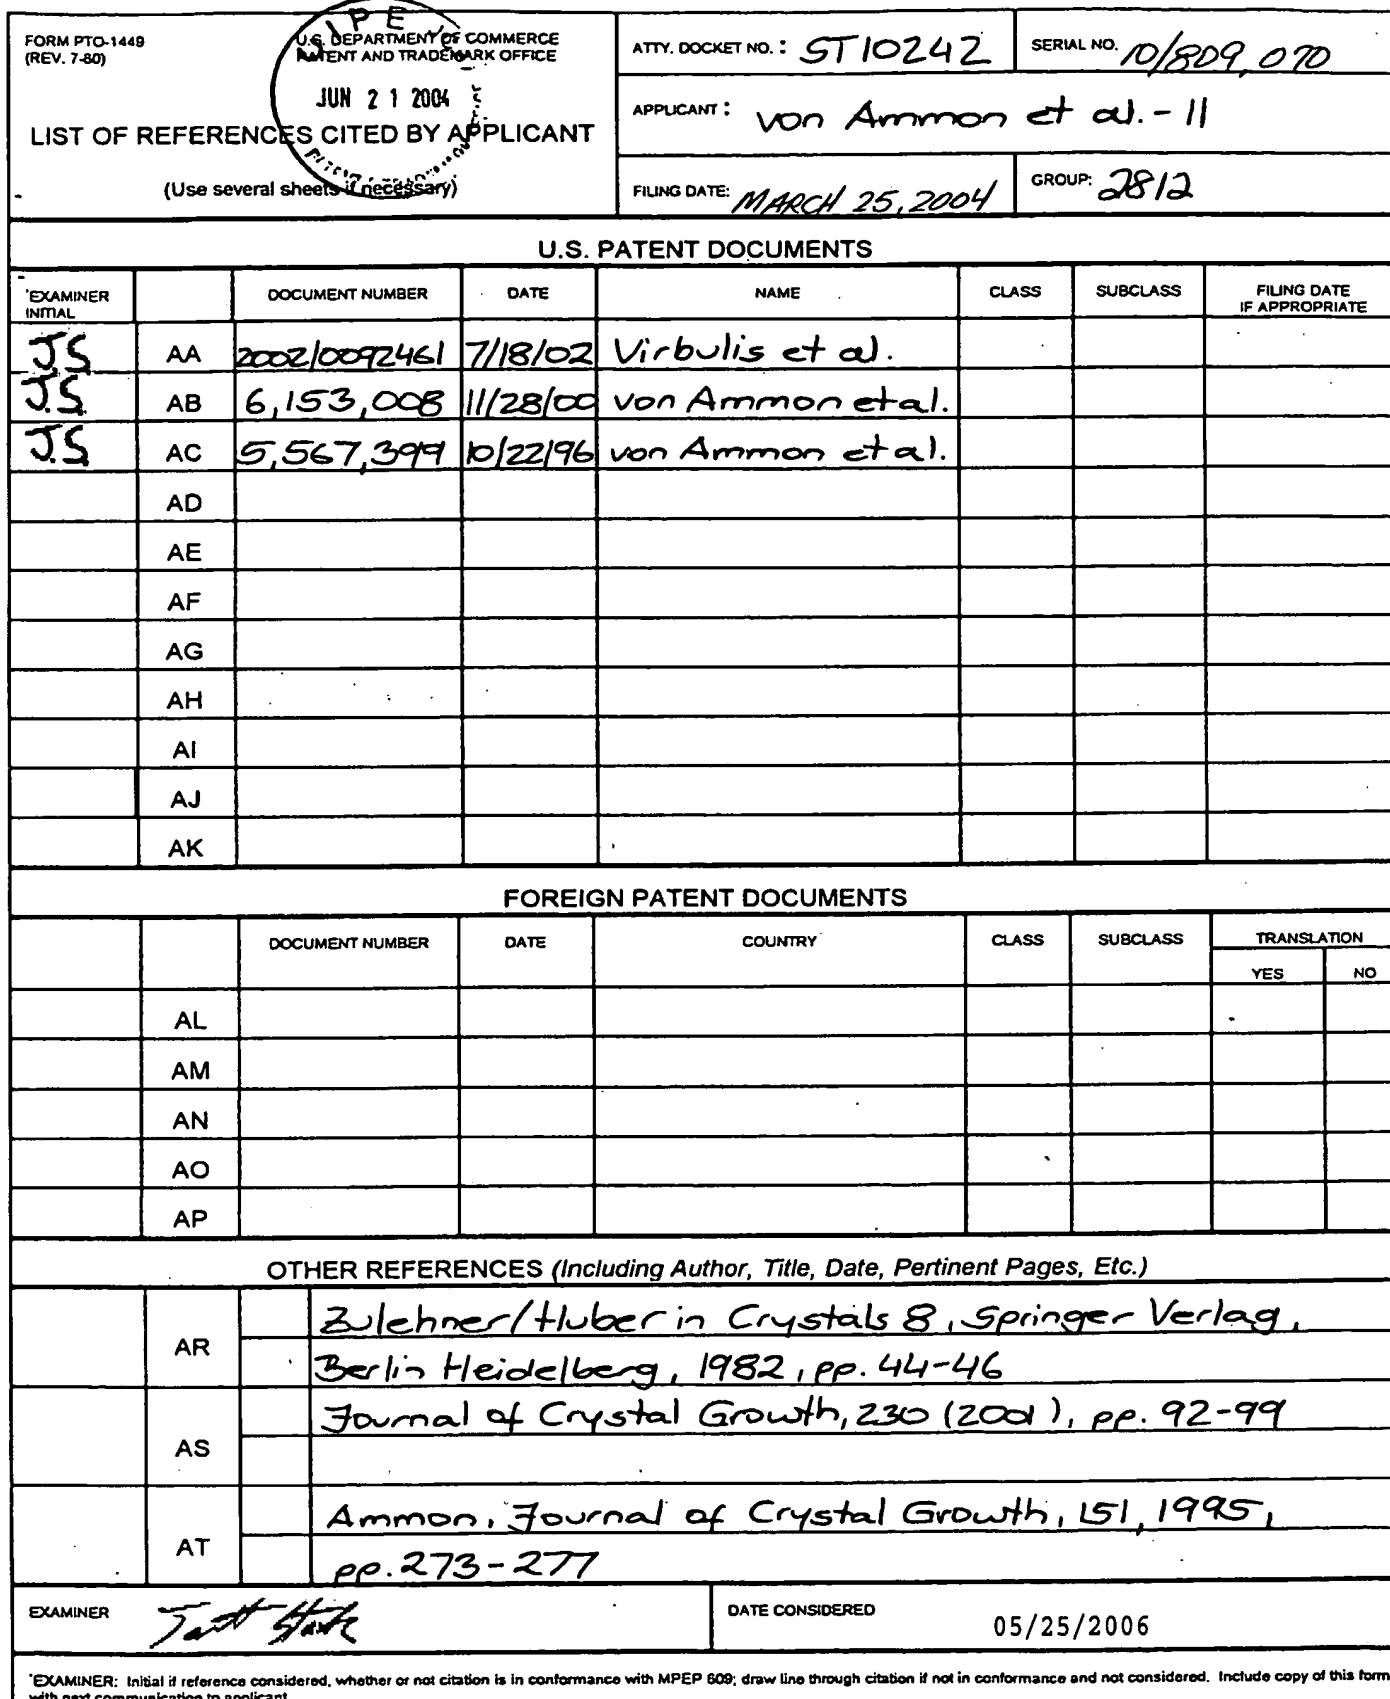 FORM PTO-1449
(REV. 7-80)
U.S. DEPARTMENT OF COMMERCE
PATENT AND TRADEMARK OFFICE
IPE
JUN 21 2004
LIST OF REFERENCES CITED BY APPLICANT
(Use several sheets if necessary)
ATTY. DOCKET NO. : ST10242
SERIAL NO. 10/809,070
APPLICANT : von Ammon et al. - 11
FILING DATE: MARCH 25, 2004
GROUP: 2812
U.S. PATENT DOCUMENTS
*EXAMINER INITIAL DOCUMENT NUMBER DATE NAME CLASS SUBCLASS FILING DATE IF APPROPRIATE
J.S AA 2002/0092461 7/18/02 Virbulis et al.
J.S. AB 6,153,008 11/28/00 von Ammon et al.
J.S AC 5,567,399 10/22/96 von Ammon et al.
AD
AE
AF
AG
AH
AI
AJ
AK
FOREIGN PATENT DOCUMENTS
DOCUMENT NUMBER DATE COUNTRY CLASS SUBCLASS TRANSLATION
YES NO
AL
AM
AN
AO
AP
OTHER REFERENCES (Including Author, Title, Date, Pertinent Pages, Etc.)
AR Zulehner/Huber in Crystals 8, Springer Verlag,
Berlin Heidelberg, 1982, pp. 44-46
AS Journal of Crystal Growth, 230 (2001), pp. 92-99
AT Ammon, Journal of Crystal Growth, 151, 1995,
pp. 273-277
EXAMINER
DATE CONSIDERED 05/25/2006
*EXAMINER: Initial if reference considered, whether or not citation is in conformance with MPEP 609; draw line through citation if not in conformance and not considered. Include copy of this form
with next communication to applicant.